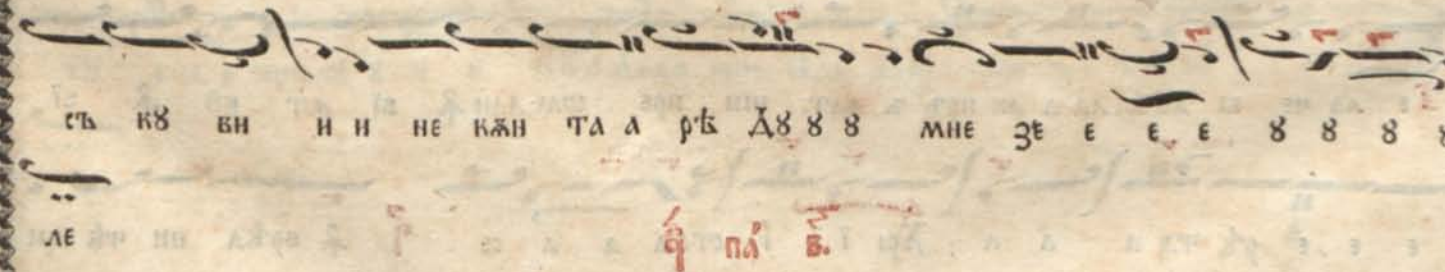 съ кꙋ ви и и не кѫн та а рѣ дꙋ ꙋ ꙋ мне зе е е е ꙋ ꙋ ꙋ ꙋ
ле пла в҃.